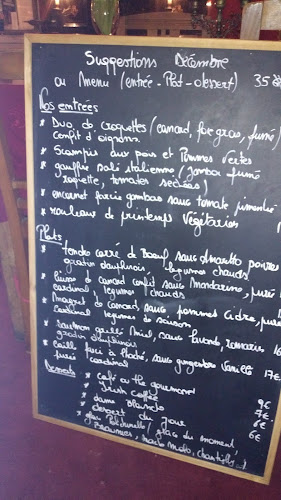 Suggestions Décembre
ou Menu (entrée - Plat - dessert) 35
Nos entrées
* Duo de croquettes (canard, foie gras, fumé)
confit d'oignons
* Scampis aux poires et Pommes Vertes
* gauffre salé italienne (Jambon fumé
roquette, tomates séchées)
* encornet farcis gambas sauce tomate pimentée
* rouleaux de printemps Végétarien
Plats
* carré de Boeuf, sauce Amaretto poivres
gratin dauphinois, legumes chauds
* de canard confit sauce Mandarine, purée
cardinal legumes chauds
* Magret de canard, sauce pommes Cidre, purée
Cardinal legumes de saison
* grillé Miel, sauce lavande, romarin 16
gratin dauphinois
* Caille farci à, sauce gingembre Vanille 17€
purée cardinal
Desserts
* café ou thé gourmand 9€
* Irish coffee 7€
* dame Blanche 6€
* dessert du Jour 6€
* glace / glace du moment 6€
Brownies,